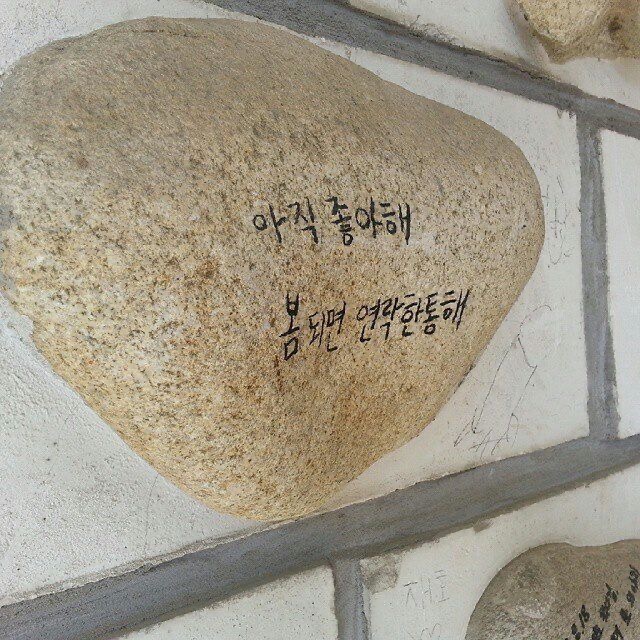 아직 좋아해
봄 되면 연락한통해
재호